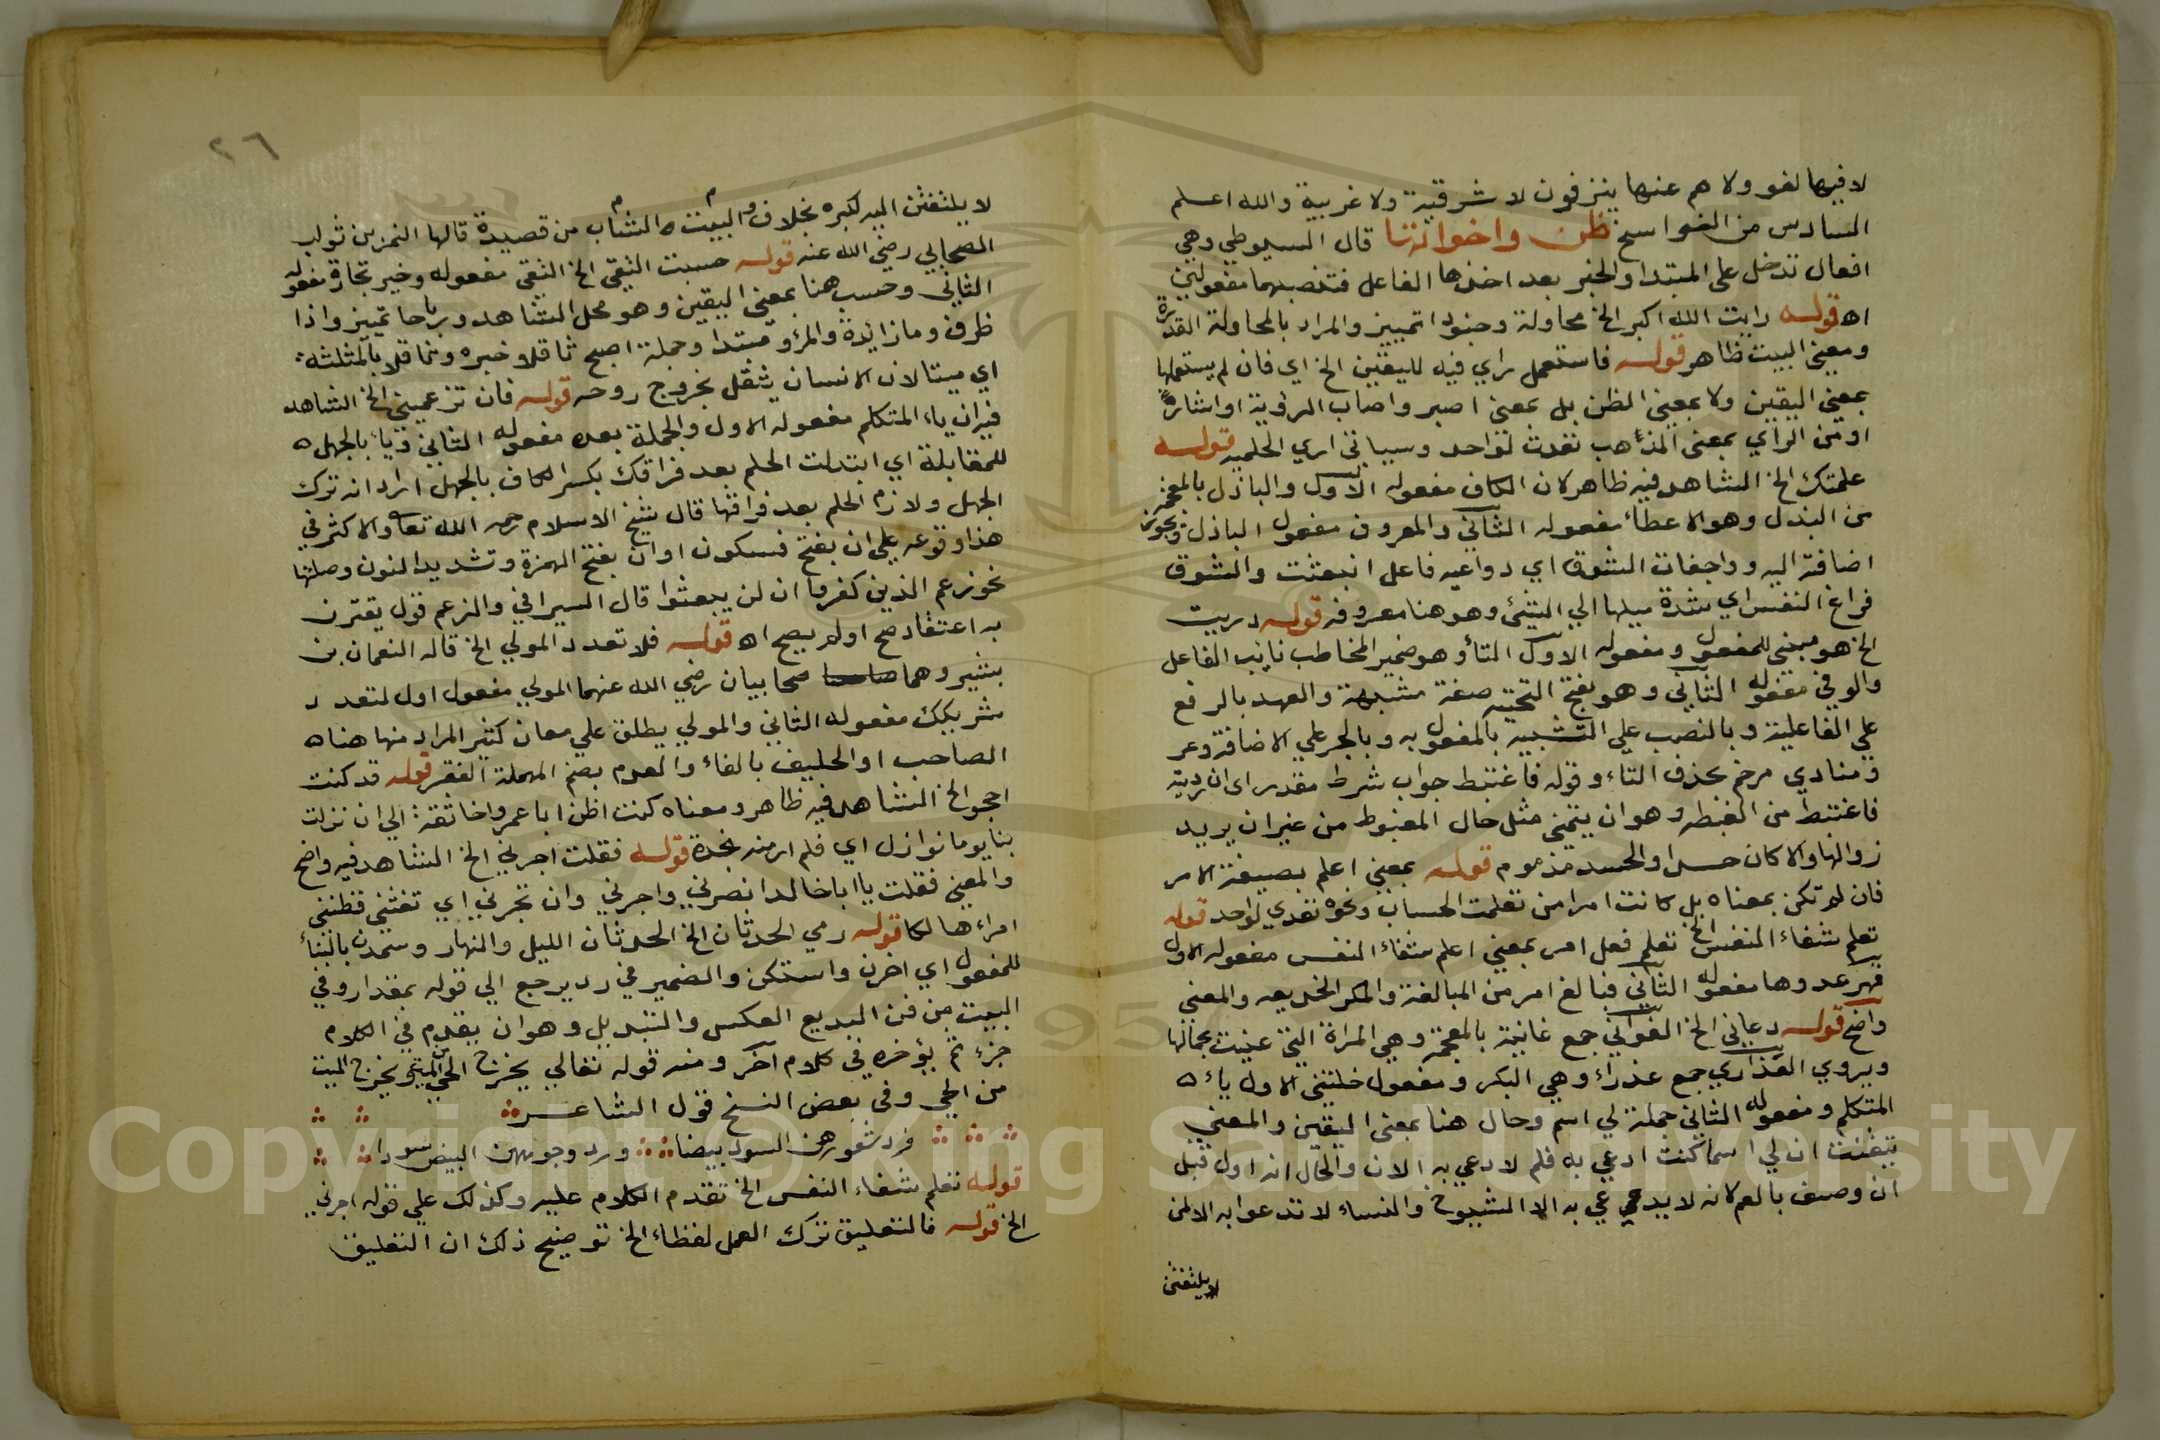 لا فيها لغو ولا هم عنها ينزفون لا شرقية ولا غربية والله اعلم
السادس من النواسخ ظن واخواتها قال السيوطي وهي
افعال تدخل على المبتدا والخبر بعد اخذها الفاعل فتنصبهما مفعولين
اه قوله رايت الله اكبر الخ محاولة وجنودا تمييز والمراد بالمحاولة القدرة
ومعنى البيت ظاهر قوله فاستعمل راي فيه لليقين الخ اي فان لم يستعملها
بمعنى اليقين ولا بمعنى الظن بل بمعنى ابصر واصاب الرؤية او اشارة
او من الراي بمعنى المذهب تعدت لواحد وسياتي اري الحلمية قوله
علمتك الخ الشاهد فيه ظاهر لان الكاف مفعوله الاول والباذل بالمعجمة
من البذل وهو الاعطاء مفعوله الثاني والمعروف مفعول الباذل ويجوز
اضافته اليه وواجفات الشوق اي دواعيه فاعل انبعثت والشوق
فراغ النفس اي شدة ميلها الي الشئ وهو هنا معروفه قوله دريت
الخ هو مبني للمفعول ومفعوله الاول التاء وهو ضمير المخاطب نايب الفاعل
والوفي مفعوله الثاني وهو بفتح التحتيه صفة مشبهة والعهد بالرفع
علي الفاعلية وبالنصب علي التشبيه بالمفعول به وبالجر علي الاضافة وعر
ومنادي مرخم بحذف التاء وقوله فاغتبط جواب شرط مقدر اي ان دريته
فاغتبط من الغبطه وهو ان يتمنى مثل حال المغبوط من غير ان يريد
زوالها والا كان حسدا والحسد مذموم قوله بمعنى اعلم بصيغة الامر
فان لم تكن بمعناه بل كانت امرا من تعلمت الحساب ونحوه تعدي لواحد قوله
تعلم شفاء النفس الخ تعلم فعل امر بمعنى اعلم شفاء النفس مفعوله الاول
قهر عدوها مفعوله الثاني فبالغ امر من المبالغة والمكر الخديعه والمعنى
واضح قوله دعاني الخ الغواني جمع غانية بالمعجمة وهي المراة التي غنيت بجمالها
ويروي العذاري جمع عذراء وهي البكر ومفعول خلتني الاول ياء ه
المتكلم ومفعوله الثاني جملة لي اسم وحال هنا بمعنى اليقين والمعنى
تيقنت ان لي اسما كنت ادعي به فلم لا دعي به الان والحال انه اول قبل
ان وصف بالعم لانه لا يدعي به الا الشيوخ والنساء لا تدعوا به الا لمن
لا يلتفتن
٢٦
لا يلتفتن اليه لكبره بخلاف والبيت ه الشاب من قصيدة قالها النمر بن ثولب
الصحابي رضي الله عنه قوله حسبت التقي الخ التقي مفعوله وخير تجارة مفعوله
الثاني وحسب هنا بمعنى اليقين وهو محل الشاهد ورباحا تمييز واذا
ظرف وما زايدة والمرؤ مبتدا وجملة اصبح ثاقلا خبره وثاقلا بالمثلثة
اي ميتا لان الانسان يثقل بخروج روحه قوله فان تزعميني الخ الشاهد
فيه ان ياء المتكلم مفعوله الاول والجملة بعده مفعوله الثاني وباء بالجهل ه
للمقابلة اي ابتدلت الحلم بعد فراقك بكسر الكاف بالجهل اراد انه ترك
الجهل ولازم الحلم بعد فراقها قال شيخ الاسلام رحمه الله تعالى والاكثر في
هذا وقوعه علي ان بفتح فسكون او ان بفتح الهمزة وتشديد النون وصلتها
نحو زعم الذين كفروا ان لن يبعثوا قال السيرافي والزعم قول يقترن
به اعتقاد صح او لم يصح اه قوله فلا تعدد المولي الخ قاله النعمان بن
بشير وهما صحابيان رضي الله عنهما المولي مفعول اول لتعدد
شريكك مفعوله الثاني والمولي يطلق علي معان كثير المراد منها هنا ه
الصاحب او الحليف بالفاء والعدم بضم المهملة الفقر قوله قد كنت
احجو الخ الشاهد فيه ظاهر ومعناه كنت اظن ابا عمرو اخا ثقة الي ان نزلت
بنا يوما نوازل اي فلم ار منه نجدة قوله فقلت اجرني الخ الشاهد فيه واضح
والمعنى فقلت يا ابا خالد انصرني واجرني وان تجرني اي تغثني فظنني
امراء هالكا قوله رمي الحدثان الخ الحدثان الليل والنهار وسمدن بالبناء
للمفعول اي احزن واستكن والضمير في رد يرجع الي قوله بمقدار وفي
البيت من فن البديع العكس والتبديل وهو ان يقدم في الكلام
جزء ثم يؤخره في كلام آخر ومنه قوله تعالي يخرج الحي من الميت ويخرج الميت
من الحي وفي بعض النسخ قول الشاعر
فرد شعورهن السود بيضا ورد وجوههن البيض سودا
قوله تعلم شفاء النفس الخ تقدم الكلام عليه وكذلك علي قوله اجرني
الخ قوله فالتعليق ترك العمل لفظاء الخ توضيح ذلك ان التعليق
Copyright © King Saud University